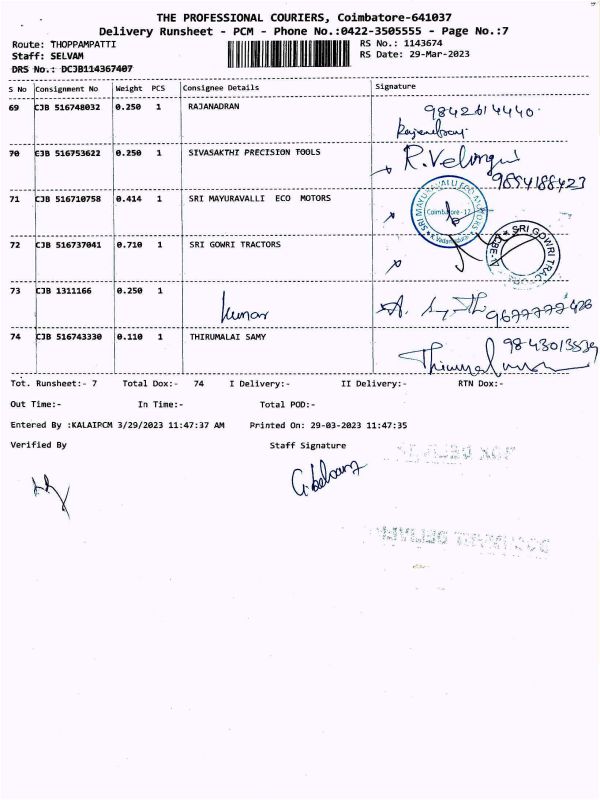 THE PROFESSIONAL COURIERS, Coimbatore-641037
Delivery Runsheet - PCM - Phone No.:0422-3505555 - Page No.:7
Route: THOPPAMPATTI
RS No.: 1143674
Staff: SELVAM
RS Date: 29-Mar-2023
DRS No.: DCJB114367407
S No Consignment No Weight PCS Consignee Details Signature
69 CJB 516748032 0.250 1 RAJANADRAN 9842614440
70 CJB 516753622 0.250 1 SIVASAKTHI PRECISION TOOLS R.Velingu
9894188423
71 CJB 516710758 0.414 1 SRI MAYURAVALLI ECO MOTORS
SRI MAYURAVALLI ECO MOTORS
Coimbatore - 17
72 CJB 516737041 0.710 1 SRI GOWRI TRACTORS
SRI GOWRI TRACTORS
CBE
73 CJB 1311166 0.250 1 kumar
74 CJB 516743330 0.110 1 THIRUMALAI SAMY
Tot. Runsheet:- 7 Total Dox:- 74 I Delivery:- II Delivery:- RTN Dox:-
Out Time:- In Time:- Total POD:-
Entered By :KALAIPCM 3/29/2023 11:47:37 AM Printed On: 29-03-2023 11:47:35
Verified By Staff Signature